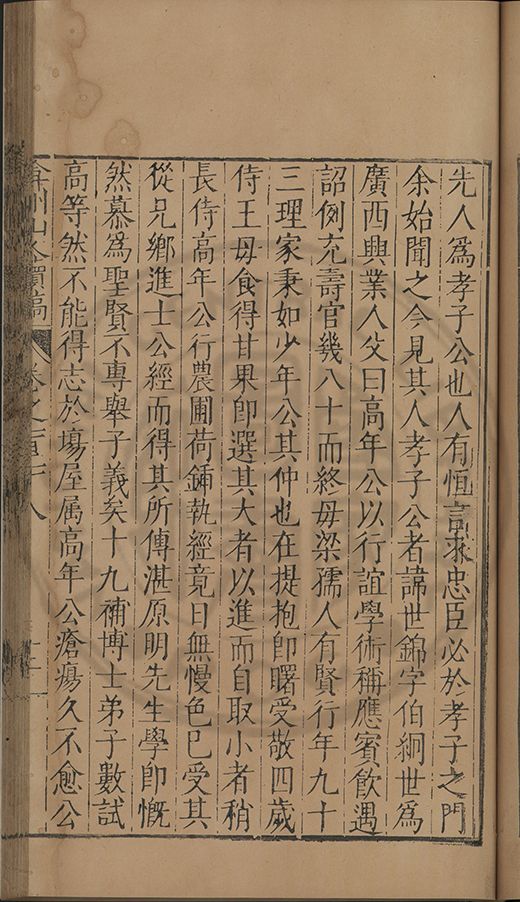 先人爲孝子公也人有恒言求忠臣必於孝子之門
余始聞之今見其人孝子公者諱世錦字伯絅世爲
廣西興業人父曰高年公以行誼學術稱應賓飲遇
詔例充壽官幾八十而終母梁孺人有賢行年九十
三理家秉如少年公其仲也在提抱卽曙受敬四歲
侍王母食得甘果卽選其大者以進而自取小者稍
長侍高年公行農圃荷鍤執經竟日無慢色已受其
從兄鄉進士公經而得其所傳湛原明先生學卽慨
然慕爲聖賢不專舉子義矣十九補博士弟子數試
高等然不能得志於塲屋属高年公瘡瘍久不愈公
弇州山人續稿 卷之一百十八